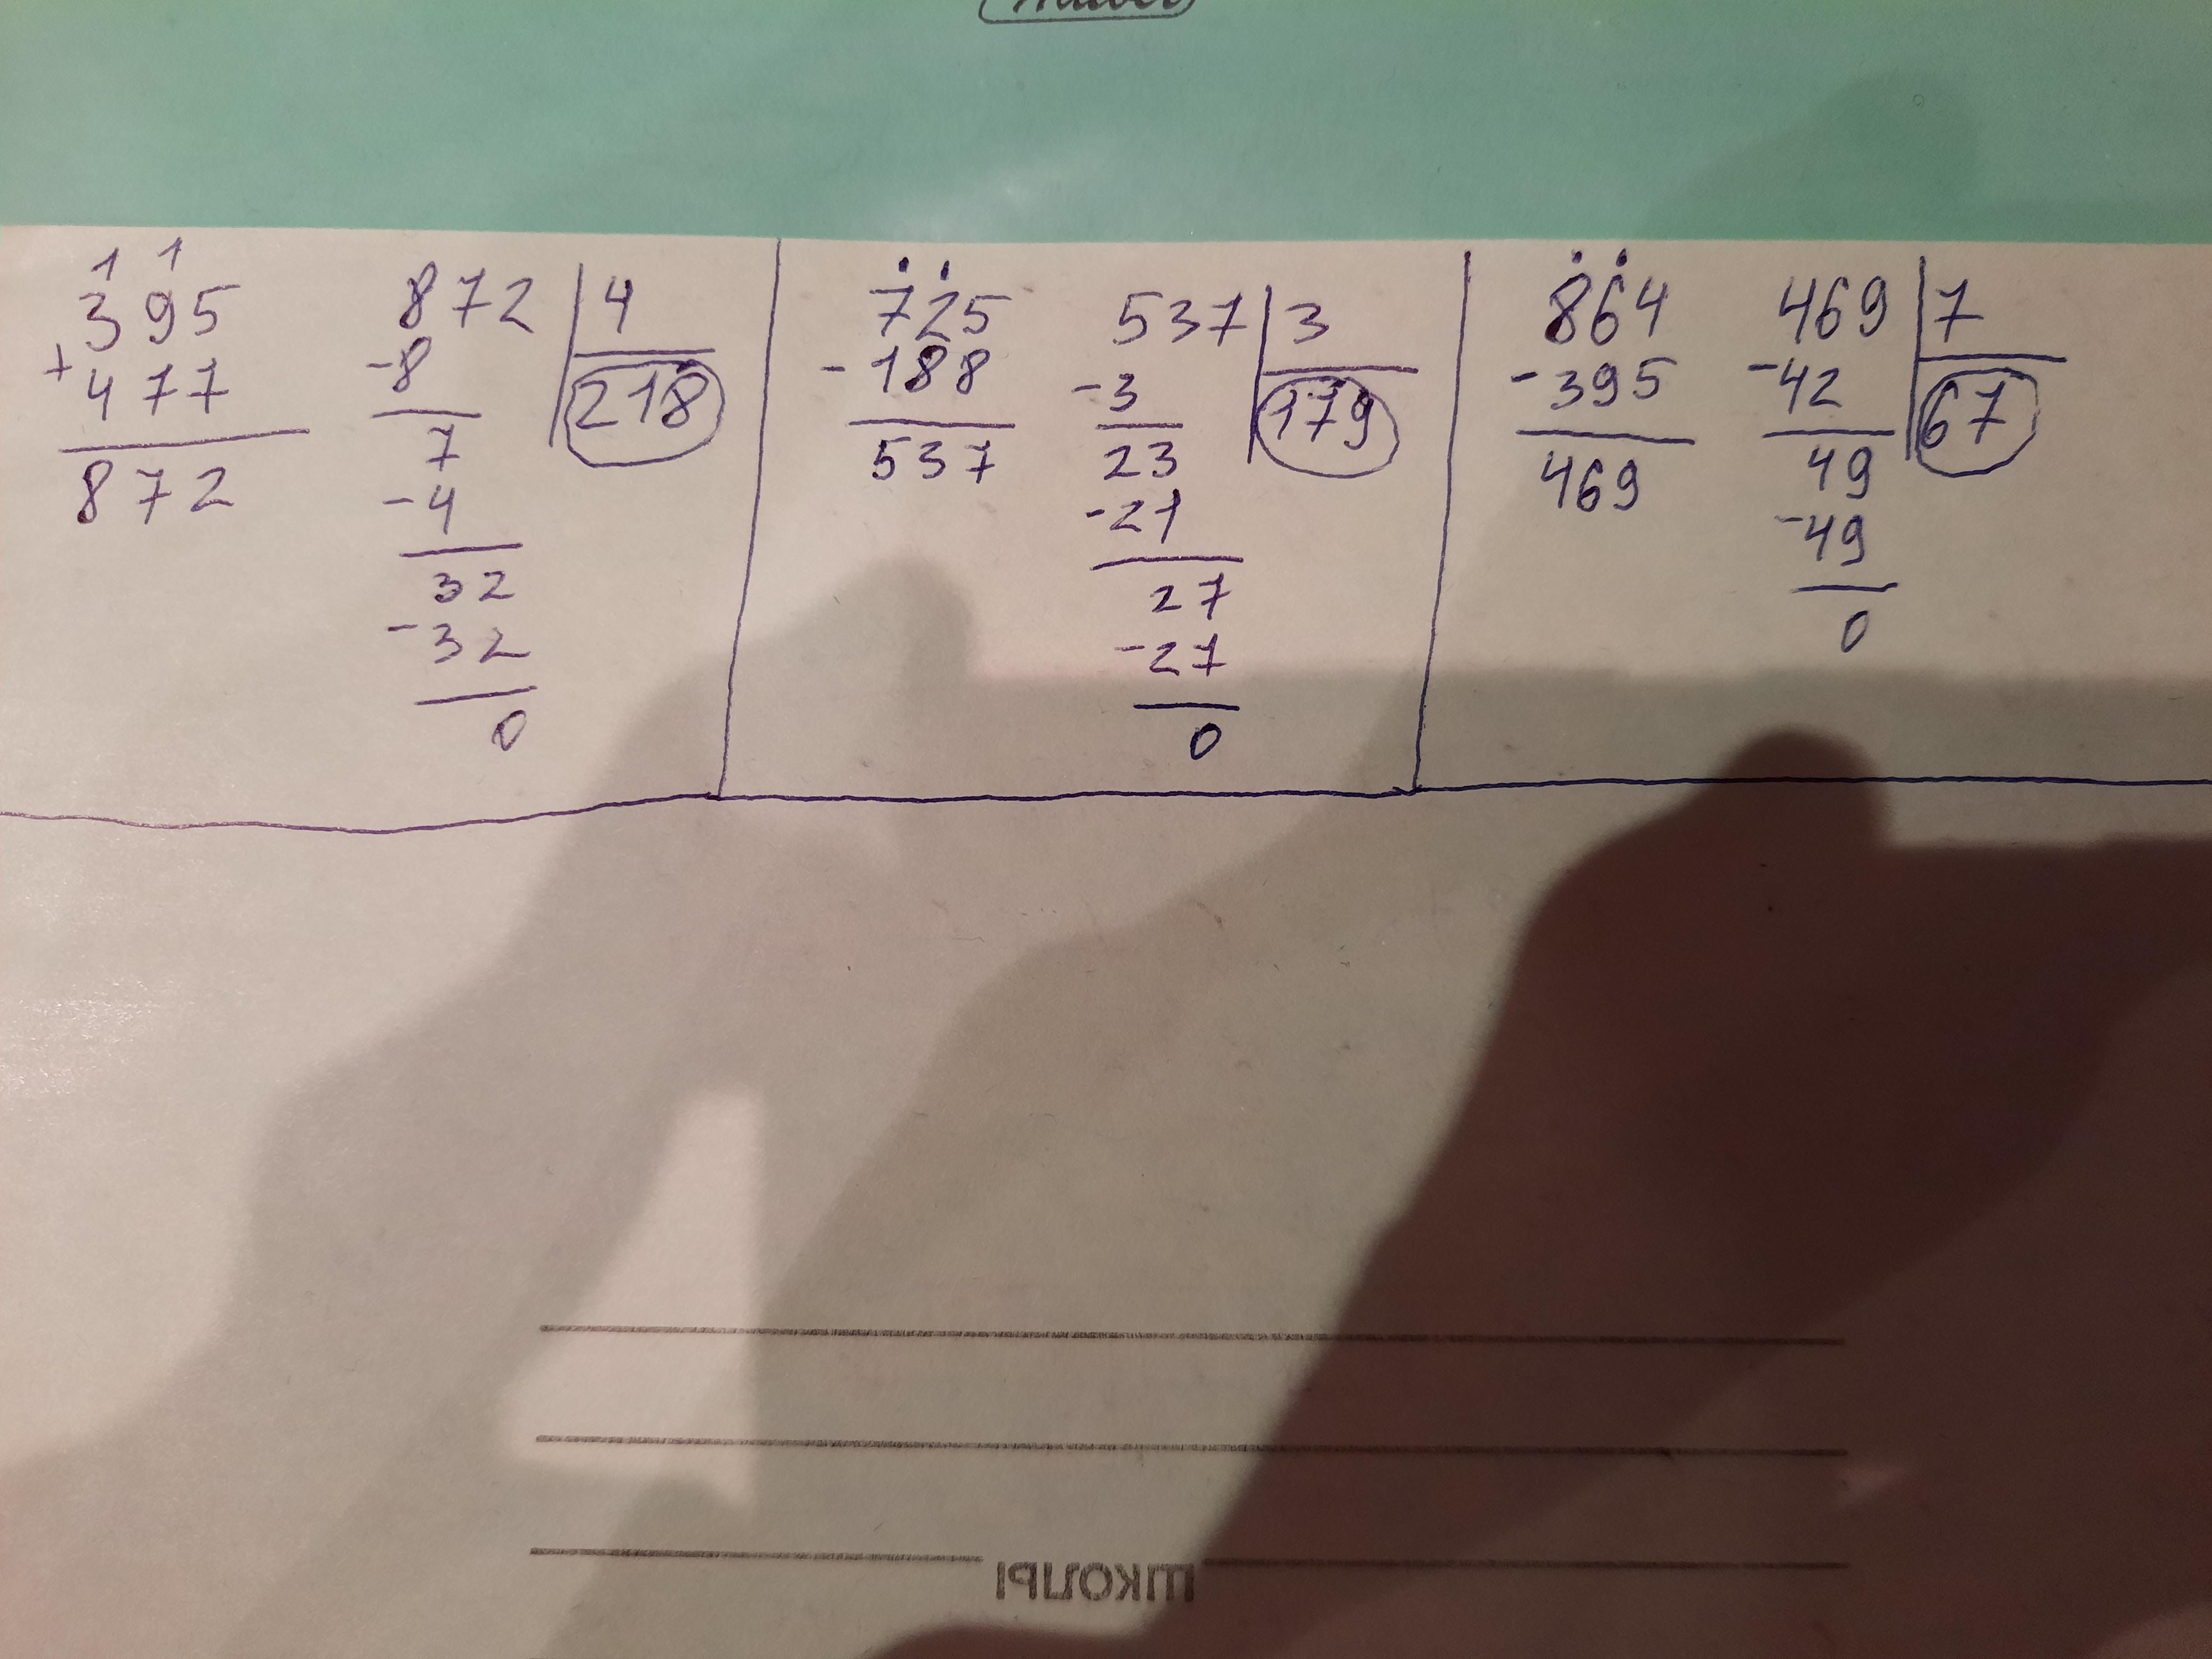 1 1
395
+
477
872
872 | 4
-8
218
7
-4
32
-32
0
725
-188
537
537 | 3
-3
179
23
-21
27
-27
0
864
-395
469
469 | 7
-42
67
49
-49
0
школы